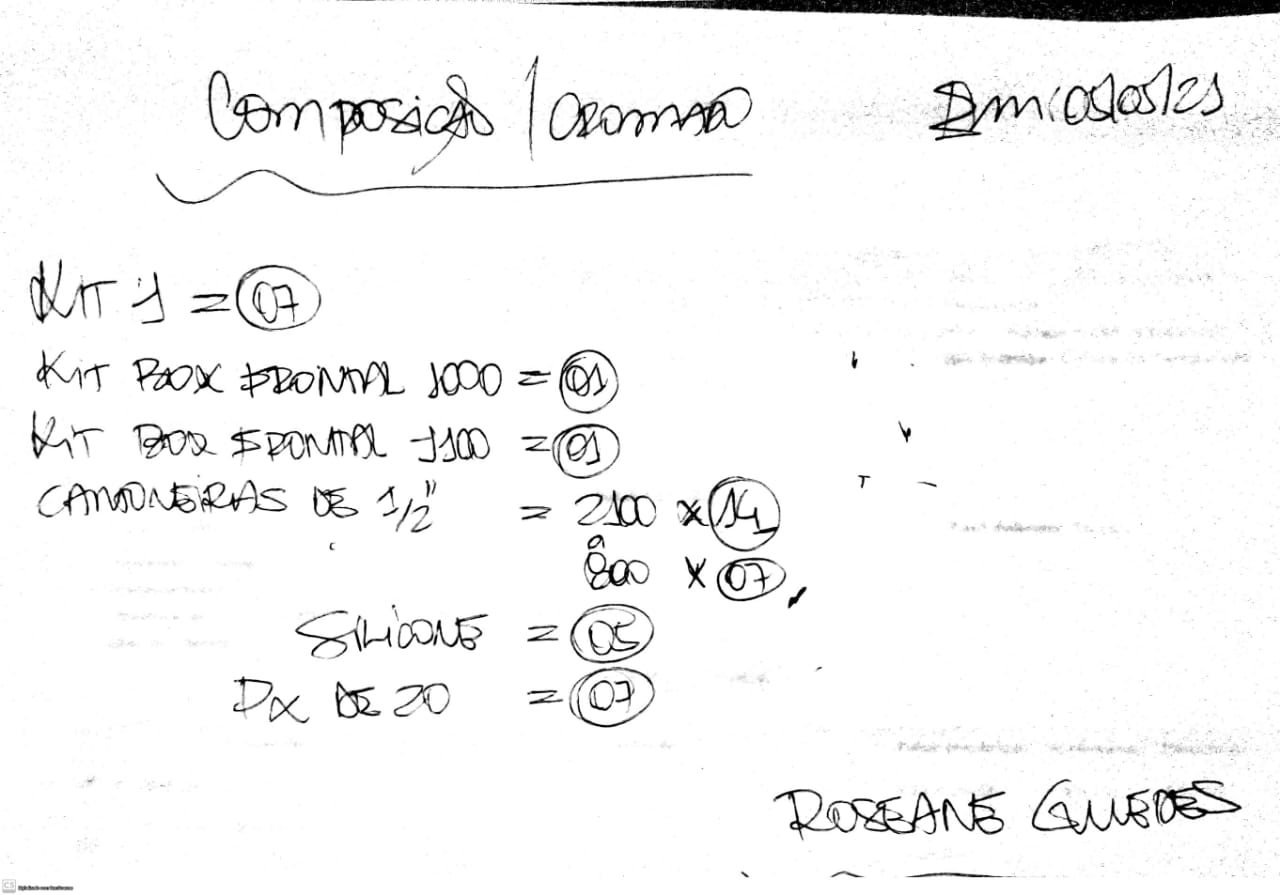 Composição / CROMADO
Em: 05/05/21
KIT 1 = 07
KIT BOX FRONTAL 1000 = 01
KIT BOX FRONTAL 1100 = 01
CANTONEIRAS DE 1/2" = 2100 x 14
800 x 07
SILICONE = 05
PX DE 20 = 07
ROSEANE GUEDES
CS